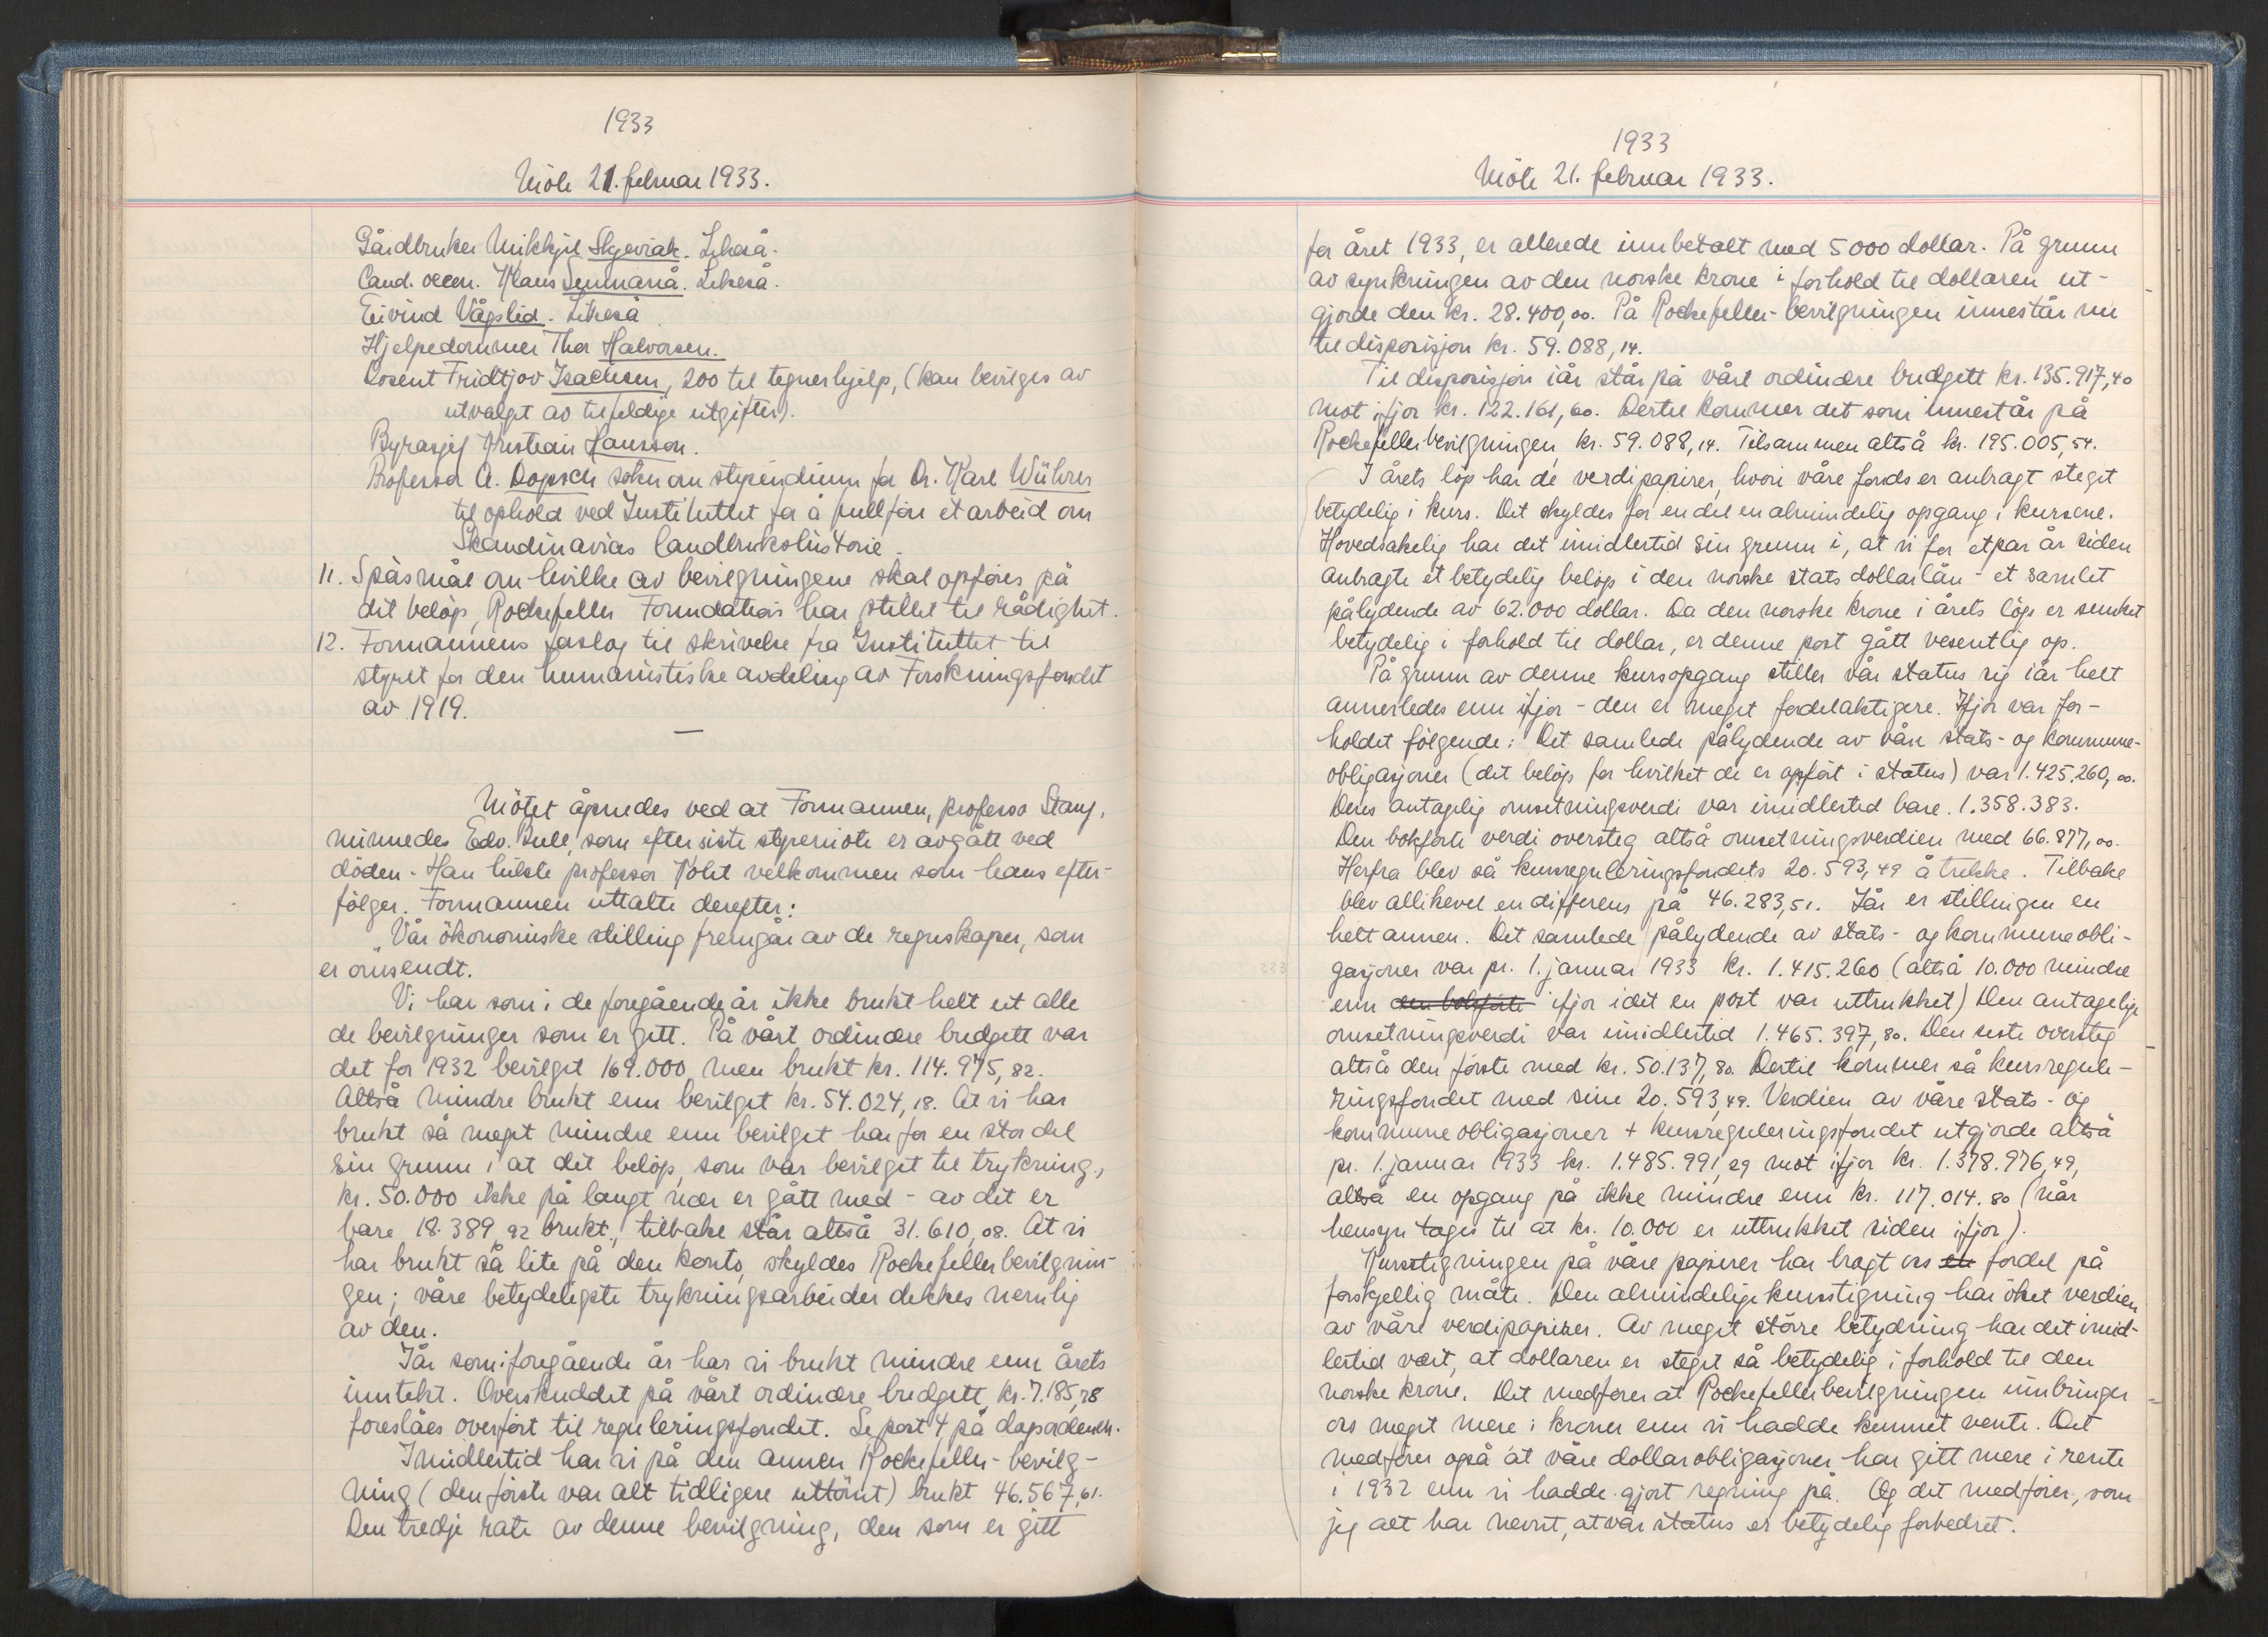 1933
Möte 21. februar 1933.
Gårdbruker Mikkjel Skjevrak. Søknad.
Cand. oecon. Klaus Sunnanå. Søknad.
Eivind Vågslid. Søknad
Hjelpedommer Thor Halvorsen.
Dosent Fridtjov Isachsen, 200 til tegnerhjelp, (kan bevilges av
utvalget av tilfeldige utgifter).
Byråsjef Kristian Hansson.
Professor A. Dopsch søker om stipendium for Dr. Karl Wührer
til ophold ved Instituttet for å fullføre et arbeid om
Skandinavias landbrukshistorie.
11. Spörsmål om hvilke av bevilgningene skal opföres på
det belöp, Rockefeller Foundation har stillet til rådighet.
12. Formannens forslag til skrivelse fra Instituttet til
styret for den humanistiske avdeling av Forskningsfondet
av 1919.
—
Mötet åpnedes ved at Formannen, professor Stang,
minnedes Edv. Bull, som efter siste styremöte er avgått ved
döden. Han hilste professor Koht velkommen som hans efter-
fölger. Formannen uttalte derefter:
„Vår ökonomiske stilling fremgår av de regnskaper, som
er omsendt.
Vi har som i de foregående år ikke brukt helt ut alle
de bevilgninger som er gitt. På vårt ordinære budgett var
det for 1932 bevilget 169.000, men brukt kr. 114.975,82.
Altså mindre brukt enn bevilget kr. 54.024,18. At vi har
brukt så meget mindre enn bevilget har for en stor del
sin grunn i at det belöp, som var bevilget til trykning,
kr. 50.000 ikke på langt nær er gått med - av det er
bare 18.389,92 brukt, tilbake står altså 31.610,08. At vi
har brukt så lite på den konto, skyldes Rockefellerbevilgnin-
gen; våre betydeligste trykningsarbeider dekkes nemlig
av den.
Iår som i foregående år har vi brukt mindre enn årets
inntekt. Overskuddet på vårt ordinære budgett, kr. 7.185,78
foreslåes overfört til reguleringsfondet. Se post 4 på dagsordenen.
Imidlertid har vi på den annen Rockefeller-bevilg-
ning (den förste var alt tidligere uttömt) brukt 46.567,61.
Den tredje rate av denne bevilgning, den som er gitt
1933
Möte 21. februar 1933.
for året 1933, er allerede innbetalt med 5000 dollar. På grunn
av synkningen av den norske krone i forhold til dollaren ut-
gjorde den kr. 28.400,00. På Rockefeller-bevilgningen innestår nu
til disposisjon kr. 59.088,14.
Til disposisjon iår står på vårt ordinære budgett kr. 135.917,40
mot ifjor kr. 122.161,60. Dertil kommer det som innestår på
Rockefellerbevilgningen, kr. 59.088,14. Tilsammen altså kr. 195.005,54.
I årets löp har de verdipapirer, hvori våre fonds er anbragt steget
betydelig i kurs. Det skyldes for en del en almindelig opgang i kursene.
Hovedsakelig har det imidlertid sin grunn i, at vi for et par år siden
anbragte et betydelig belöp i den norske stats dollarlån - et samlet
pålydende av 62.000 dollar. Da den norske krone i årets löp er sunket
betydelig i forhold til dollar, er denne post gått vesentlig op.
På grunn av denne kursopgang stiller vår status sig iår helt
annerledes enn ifjor - den er meget fordelaktigere. Ifjor var for-
holdet fölgende: Det samlede pålydende av våre stats- og kommune-
obligasjoner (det belöp for hvilket de er opfört i status) var 1.425.260,00.
Deres antagelig omsetningsverdi var imidlertid bare 1.358.383.
Den bokförte verdi oversteg altså omsetningsverdien med 66.877,00.
Herfra blev så kursreguleringsfondets 20.593,49 å trekke. Tilbake
blev allikevel en differens på 46.283,51. Iår er stillingen en
helt annen. Det samlede pålydende av stats- og kommuneobli-
gasjoner var pr. 1. januar 1933 kr. 1.415.260 (altså 10.000 mindre
enn den bokförte ifjor idet en post var uttrukket) Den antagelige
omsetningsverdi var imidlertid 1.465.397,80. Den siste oversteg
altså den förste med kr. 50.137,80. Dertil kommer så kursregule-
ringsfondet med sine 20.593,49. Verdien av våre stats- og
kommuneobligasjoner + kursreguleringsfondet utgjorde altså
pr. 1. januar 1933 kr. 1.485.991,29 mot ifjor kr. 1.378.976,49,
altså en opgang på ikke mindre enn kr. 117.014.80 (når
hensyn tages til at kr. 10.000 er uttrukket siden ifjor).
Kursstigningen på våre papirer har bragt oss en fordel på
forskjellig måte. Den almindelige kursstigning har öket verdien
av våre verdipapirer. Av meget större betydning har det imid-
lertid vært, at dollaren er steget så betydelig i forhold til den
norske krone. Det medfører at Rockefellerbevilgningen innbringer
oss meget mere i kroner enn vi hadde kunnet vente. Det
medförer også at våre dollarobligasjoner har gitt mere i rente
i 1932 enn vi hadde gjort regning på. Og det medförer, som
jeg alt har nevnt, at vår status er betydelig forbedret.